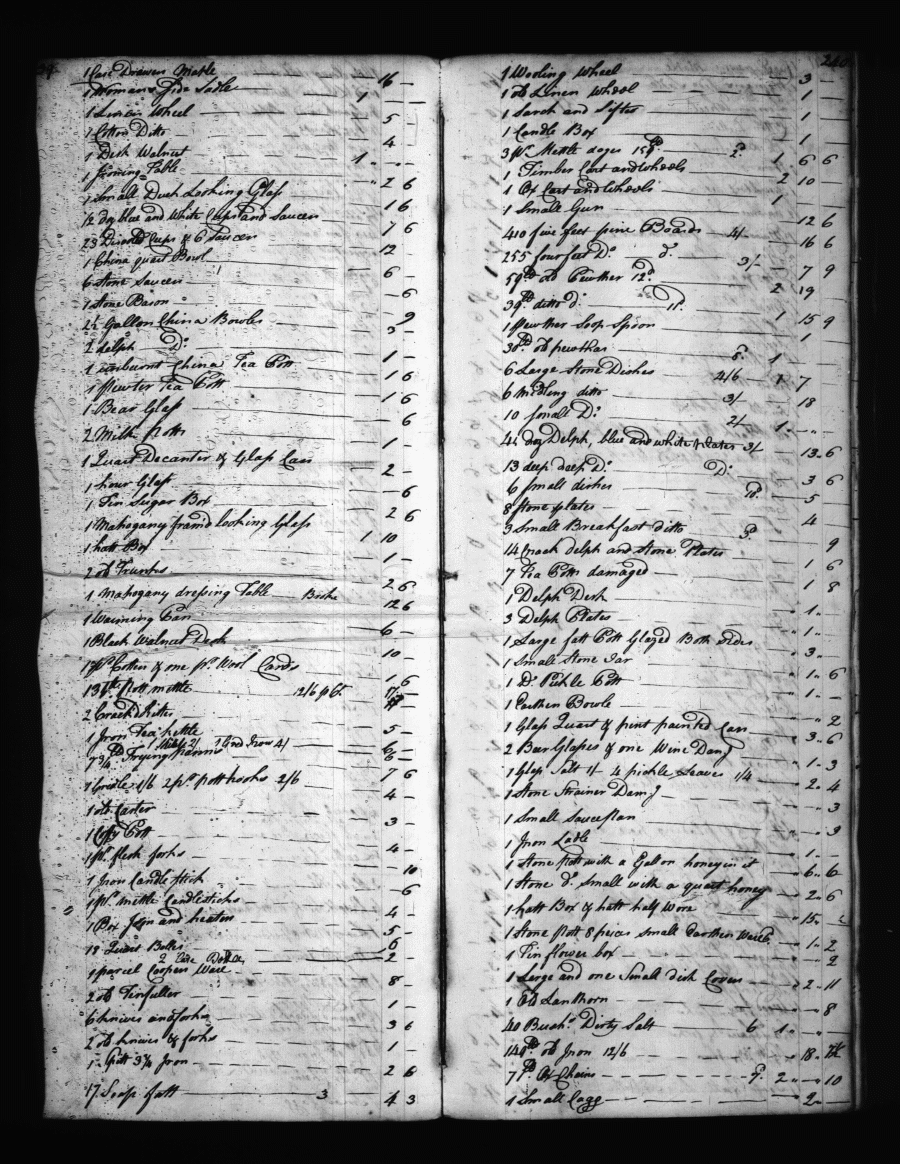 1 Case Drawers Maple 16 —
1 Womans Side Sadle 1 — —
1 Linin Wheel 5
1 Cotton Ditto 4
1 Desk Walnut 1 — —
1 Table 2 6
1 Small Duch Looking Glass 1 6
12 doz blue and White Cups and Saucers 7 6
23 Cups & 6 Saucers 12
1 China quart Bowl 6 —
6 Stone Saucers
1 Stone Bason — 6
2 Gallon China Bowles 9
2 delph Do 3 —
1 China Tea Pott 1 —
1 Pewter Tea Pott 1 6
1 Bear Glass 1 6
2 Milk Potts 6
1 Quart Decanter & Glass Can 1 —
1 hour Glass 2 —
1 Tin Sugar Box — 6
1 Mahogany fram'd looking Glass 2 6
1 hatt Box 1 10
2 old Trunks 1 —
1 Mahogany dressing Table Broke 2 6
1 Warming Pan 12 6
1 Black Walnut Desk 6 —
1 pr Cotton & one pr Wool Cards 10 —
13 lb Pott mettle 12/6 p Ct 1 6
2 Crackd
1 Iron Tea kettle 5 —
1 Grid Iron 4/
Frying panns 6 —
1 Gridle 1/6 2 pr potthooks 2/6 7 6
1 old Caster 4 —
1 Coffy Pott 3 —
1 pr flesh forks 4 —
1 Iron Candlestick 10
1 pr mettle Candlesticks 6
1 Box Iron and heaters 4 —
18 Quart Bottles 5 —
1 parcel Coopers Ware 2 —
2 old 8 —
6 knives and forks 1 —
2 old knives & forks 3 6
1 3/4 Iron 1 —
2 6
17 Soap fatt 3 4 3
240
1 Wooling Wheel 3
1 old Linen Wheel 1 —
1 Sarch and Sifter 1
1 Candle Box 1
3 pr Mettle doges 1 6 6
1 Timber Cart and Wheels 2 10
1 Ox Cart and Wheels 1
1 Small Gun 12 6
410 five feet pine Boards 4/ 16 6
255 four feet Do do 3/ 7 9
59 lb old Pewther 12d 2 19
39 lb ditto do 11d 1 15 9
1 Pewther Soop Spoon 1
30 lb old pewther 8d 1
6 Large Stone Dishes 4/6 1 7
6 Midling ditto 3/ 18
10 Small Do 2/ 1 — —
4½ doz Delph, blue and white plates 3/ 13 6
13 deep deep Do Do 3 6
6 small dishes 5
8 stone plates 4
3 Small Breakfast ditto 3d 9
14 Crack delph and Stone Plates 1 6
7 Tea Potts damaged 1 8
1 Delph Desh 1
3 Delph Plates 1
1 Large fatt Pott Glazed Both Sides 3
1 Small Stone Jar 1 6
1 Do Pickle Pott 1
1 Earthen Bowle 2
1 Glass Quart & pint painted Can 3 6
2 Bear Glasses & one Wine Damg 1 3
1 Glass Salt 1/ 4 pickle Leaves 1/4 2 4
1 Stone Strainer Damg 3
1 Small Saucepan 3
1 Iron Ladle 1
1 Stone pott with a Galon honey in it 6 6
1 Stone do Small with a quart honey 2 6
1 hatt Box & hatt half Wore 15
1 Stone Pott 8 peices small Earthen Ware 1 2
1 Tin flower box 2
1 Large and one Small dish Covers 2 11
1 Old Lanthorn 8
40 Bushs Dirty Salt 6 1
140 lb old Iron 12/6 18
71 lb Ox Chains 7d 2 — 10
1 Small Cagg 2